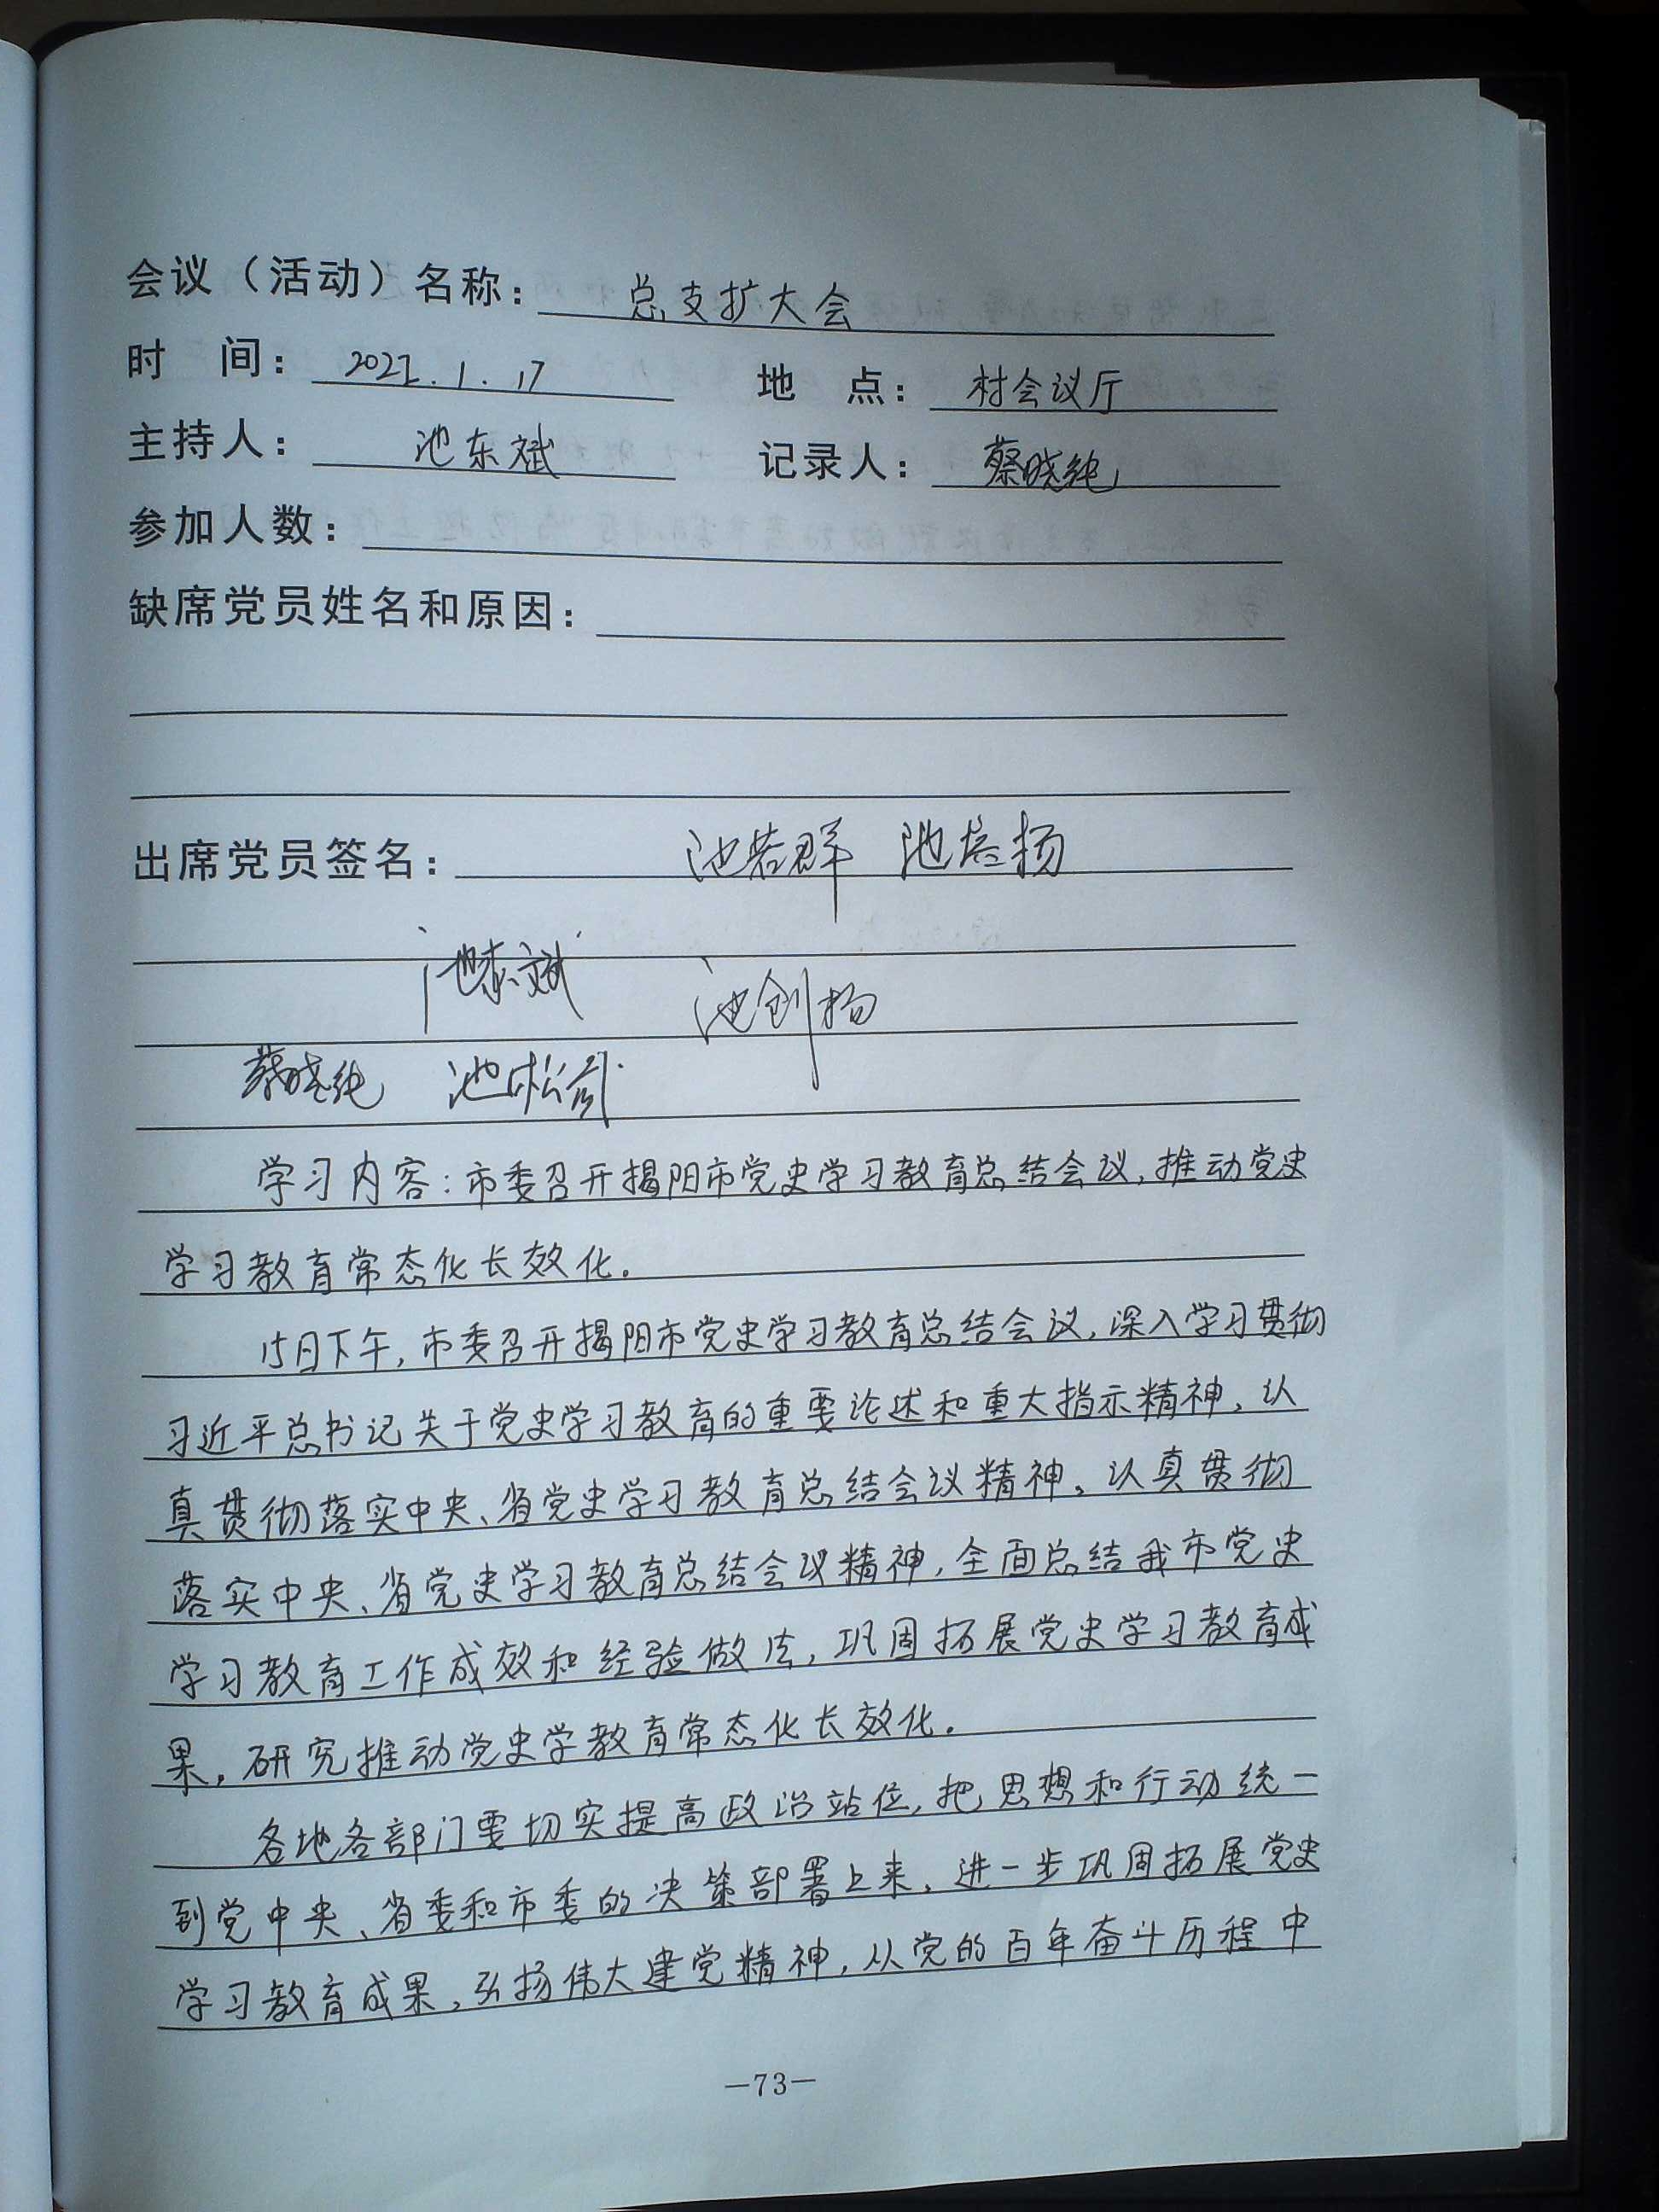 会议（活动）名称：总支扩大会
时 间：2022.1.17 地 点：村会议厅
主持人：池东斌 记录人：蔡晓纯
参加人数：
缺席党员姓名和原因：
出席党员签名：池若群 池培扬
池东斌 池创扬
蔡晓纯 池松
学习内容：市委召开揭阳市党史学习教育总结会议，推动党史
学习教育常态化长效化。
15日下午，市委召开揭阳市党史学习教育总结会议，深入学习贯彻
习近平总书记关于党史学习教育的重要论述和重大指示精神，认
真贯彻落实中央、省党史学习教育总结会议精神。认真贯彻
落实中央、省党史学习教育总结会议精神，全面总结我市党史
学习教育工作成效和经验做法，巩固拓展党史学习教育成
果，研究推动党史学教育常态化长效化。
各地各部门要切实提高政治站位，把思想和行动统一
到党中央、省委和市委的决策部署上来，进一步巩固拓展党史
学习教育成果，弘扬伟大建党精神，从党的百年奋斗历程中
—73—